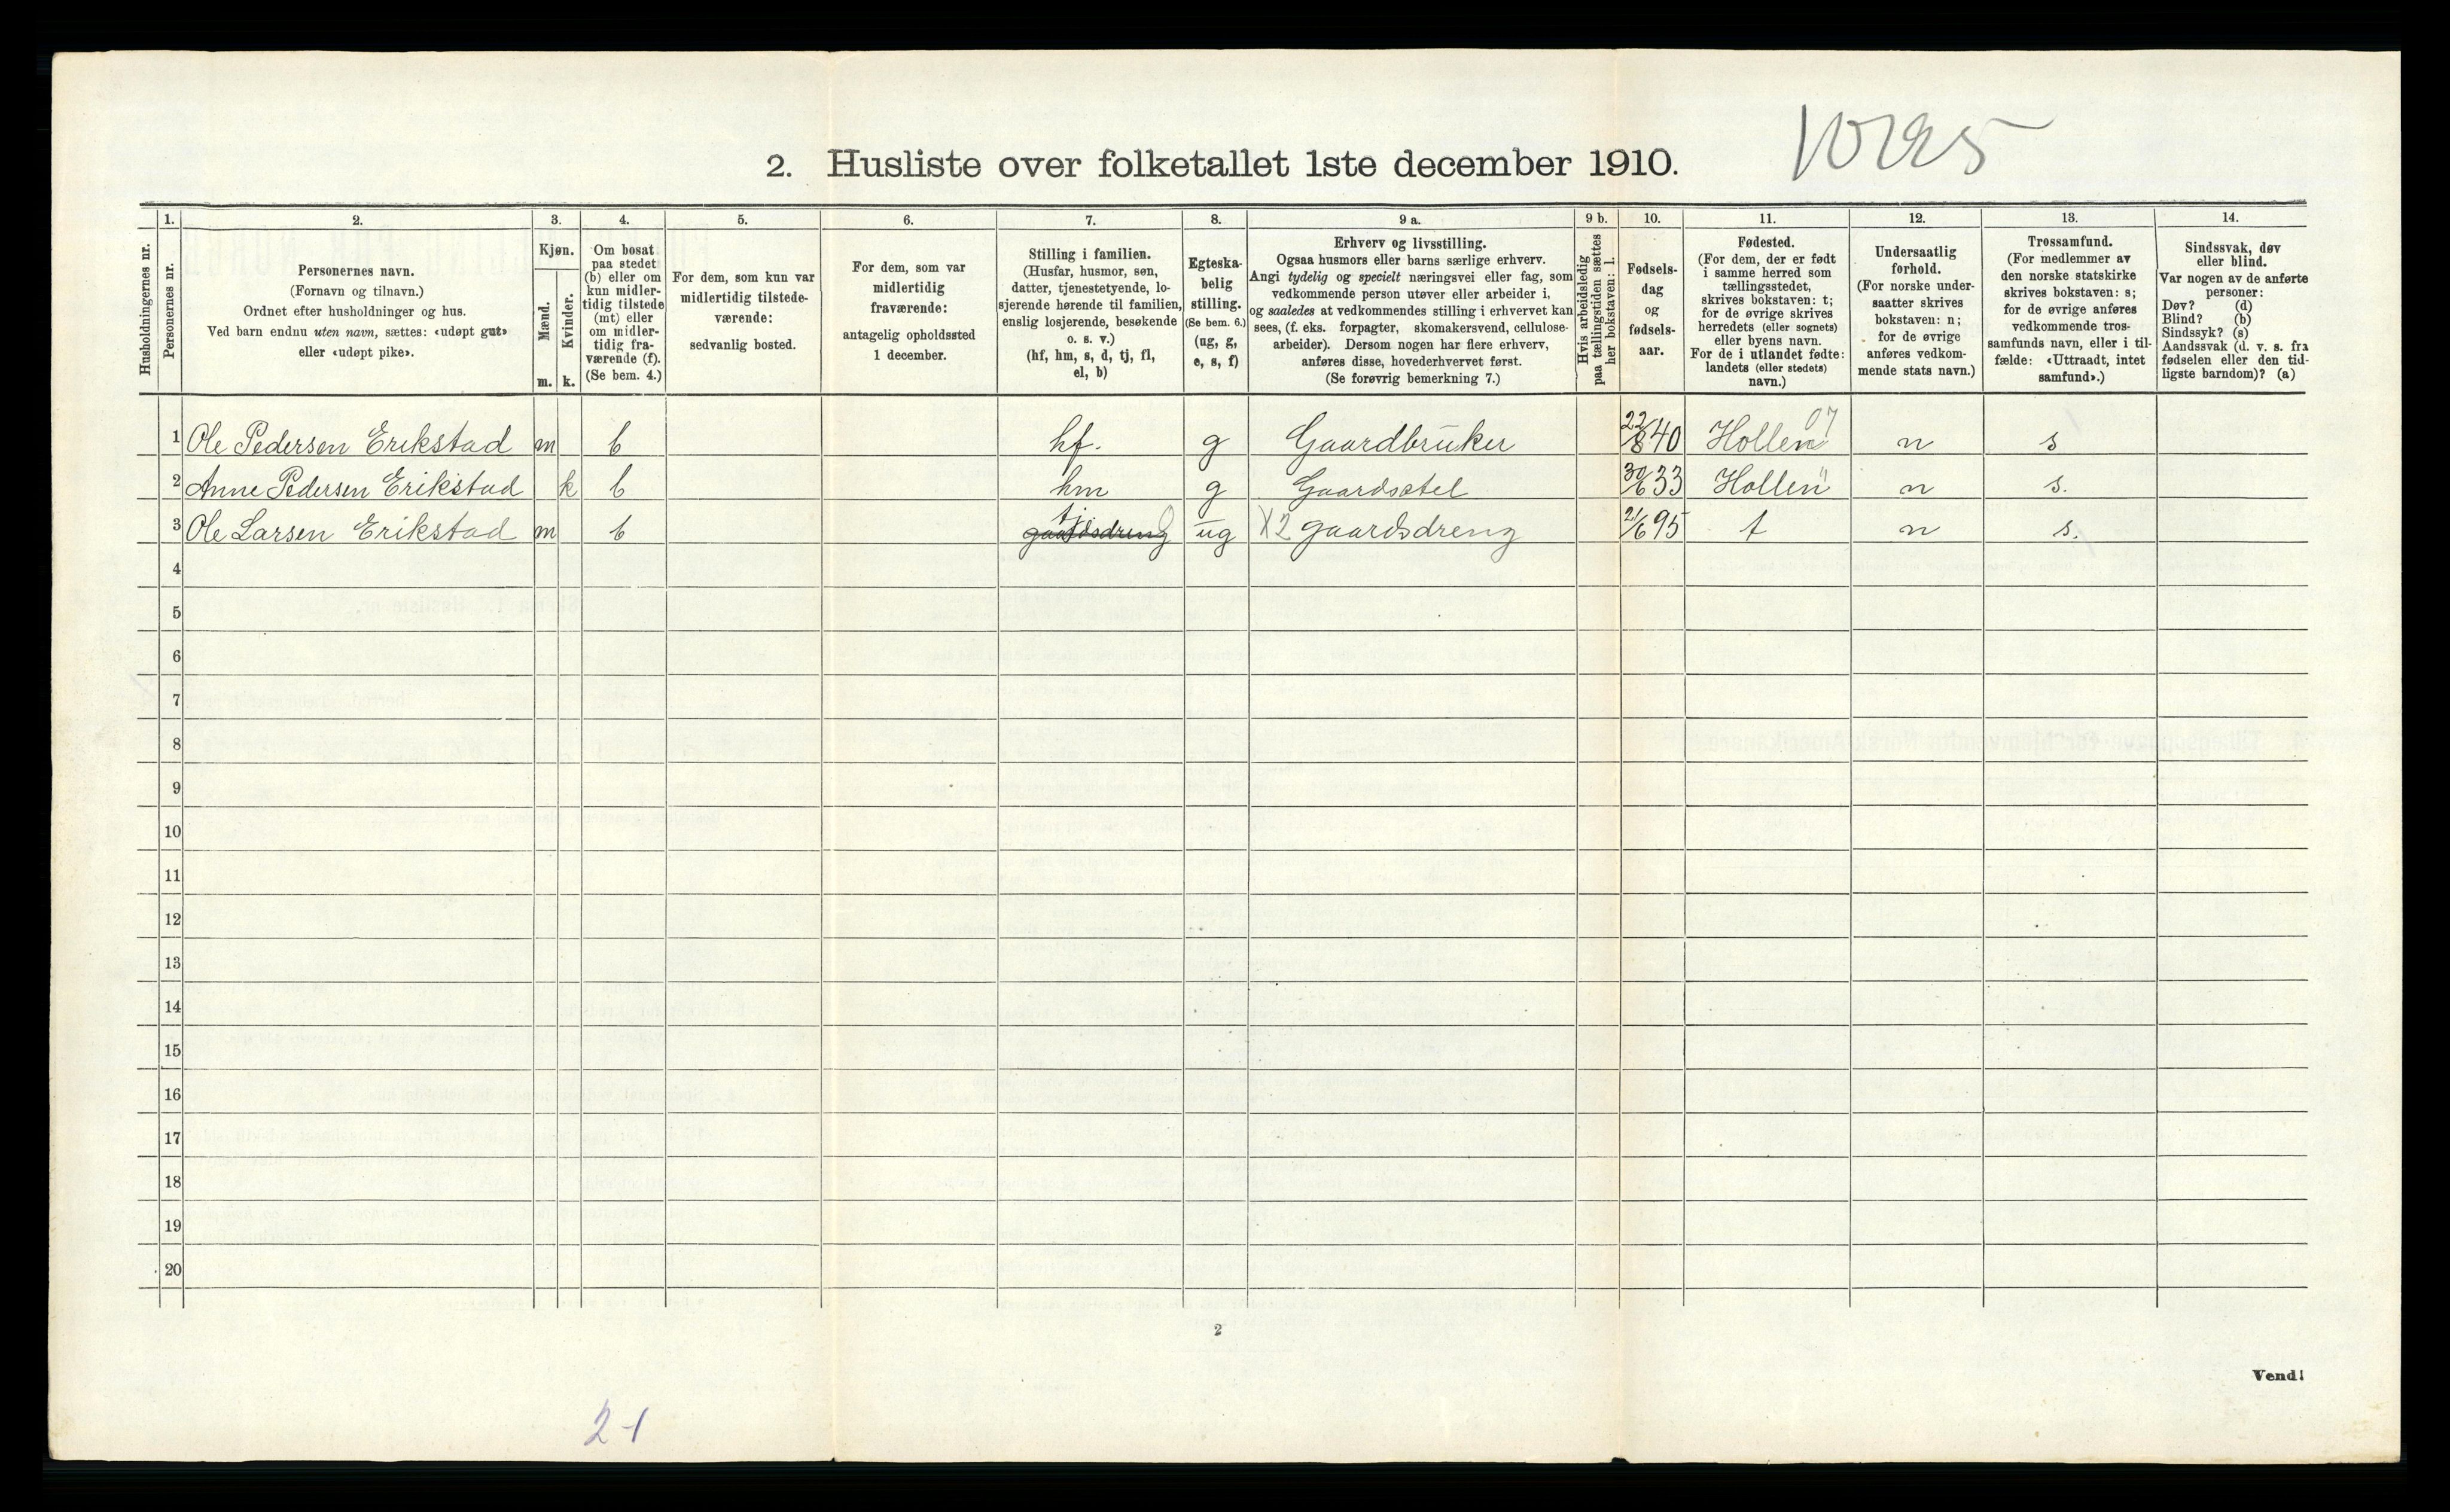 2. Husliste over folketallet 1ste december 1910.
Husholdningernes nr.
1.
Personernes nr.
2.
Personernes navn.
(Fornavn og tilnavn.)
Ordnet efter husholdninger og hus.
Ved barn endnu uten navn, sættes: «udøpt gut»
eller «udøpt pike».
3.
Kjøn.
Mænd.
m.
Kvinder.
k.
4.
Om bosat
paa stedet
(b) eller om
kun midler-
tidig tilstede
(mt) eller
om midler-
tidig fra-
værende (f).
(Se bem. 4.)
5.
For dem, som kun var
midlertidig tilstede-
værende:
sedvanlig bosted.
6.
For dem, som var
midlertidig
fraværende:
antagelig opholdssted
1 december.
7.
Stilling i familien.
(Husfar, husmor, søn,
datter, tjenestetyende, lo-
sjerende hørende til familien,
enslig losjerende, besøkende
o. s. v.)
(hf, hm, s, d, tj, fl,
el, b)
8.
Egteska-
belig
stilling.
(Se bem. 6.)
(ug, g,
e, s, f)
9 a.
Erhverv og livsstilling.
Ogsaa husmors eller barns særlige erhverv.
Angi tydelig og specielt næringsvei eller fag, som
vedkommende person utøver eller arbeider i,
og saaledes at vedkommendes stilling i erhvervet kan
sees, (f. eks. forpagter, skomakersvend, cellulose-
arbeider). Dersom nogen har flere erhverv,
anføres disse, hovederhvervet først.
(Se forøvrig bemerkning 7.)
9 b.
Hvis arbeidsledig
paa tællingstiden sættes
her bokstaven: l.
10.
Fødsels-
dag
og
fødsels-
aar.
11.
Fødested.
(For dem, der er født
i samme herred som
tællingsstedet,
skrives bokstaven: t;
for de øvrige skrives
herredets (eller sognets)
eller byens navn.
For de i utlandet fødte:
landets (eller stedets)
navn.)
12.
Undersaatlig
forhold.
(For norske under-
saatter skrives
bokstaven: n;
for de øvrige
anføres vedkom-
mende stats navn.)
13.
Trossamfund.
(For medlemmer av
den norske statskirke
skrives bokstaven: s;
for de øvrige anføres
vedkommende tros-
samfunds navn, eller i til-
fælde: «Uttraadt, intet
samfund».)
14.
Sindssvak, døv
eller blind.
Var nogen av de anførte
personer:
Døv? (d)
Blind? (b)
Sindssyk? (s)
Aandssvak (d. v. s. fra
fødselen eller den tid-
ligste barndom)? (a)
1 Ole Pedersen Erikstad m b hf. g Gaardbruker 22/8 40 Hollen 07 n s
2 Anne Pedersen Erikstad k b hm g Gaardsstel 30/6 33 Hollen " n s.
3 Ole Larsen Erikstad m b gaardsdreng tj ug X2 gaardsdreng 21/6 95 t n s.
4
5
6
7
8
9
10
11
12
13
14
15
16
17
18
19
20
2
Vend!
2-1